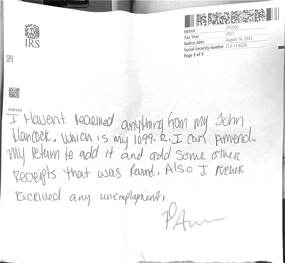 IRS
Notice CP2000
Tax Year 2021
Notice date August 14, 2023
Social Security number
Page 9 of 9
I Havent received anything from my John
Hancock. Which is my 1099-R. I can Amend
my return to add it and add some other
Receipts that was found. Also I never
Recieved any unemployment.